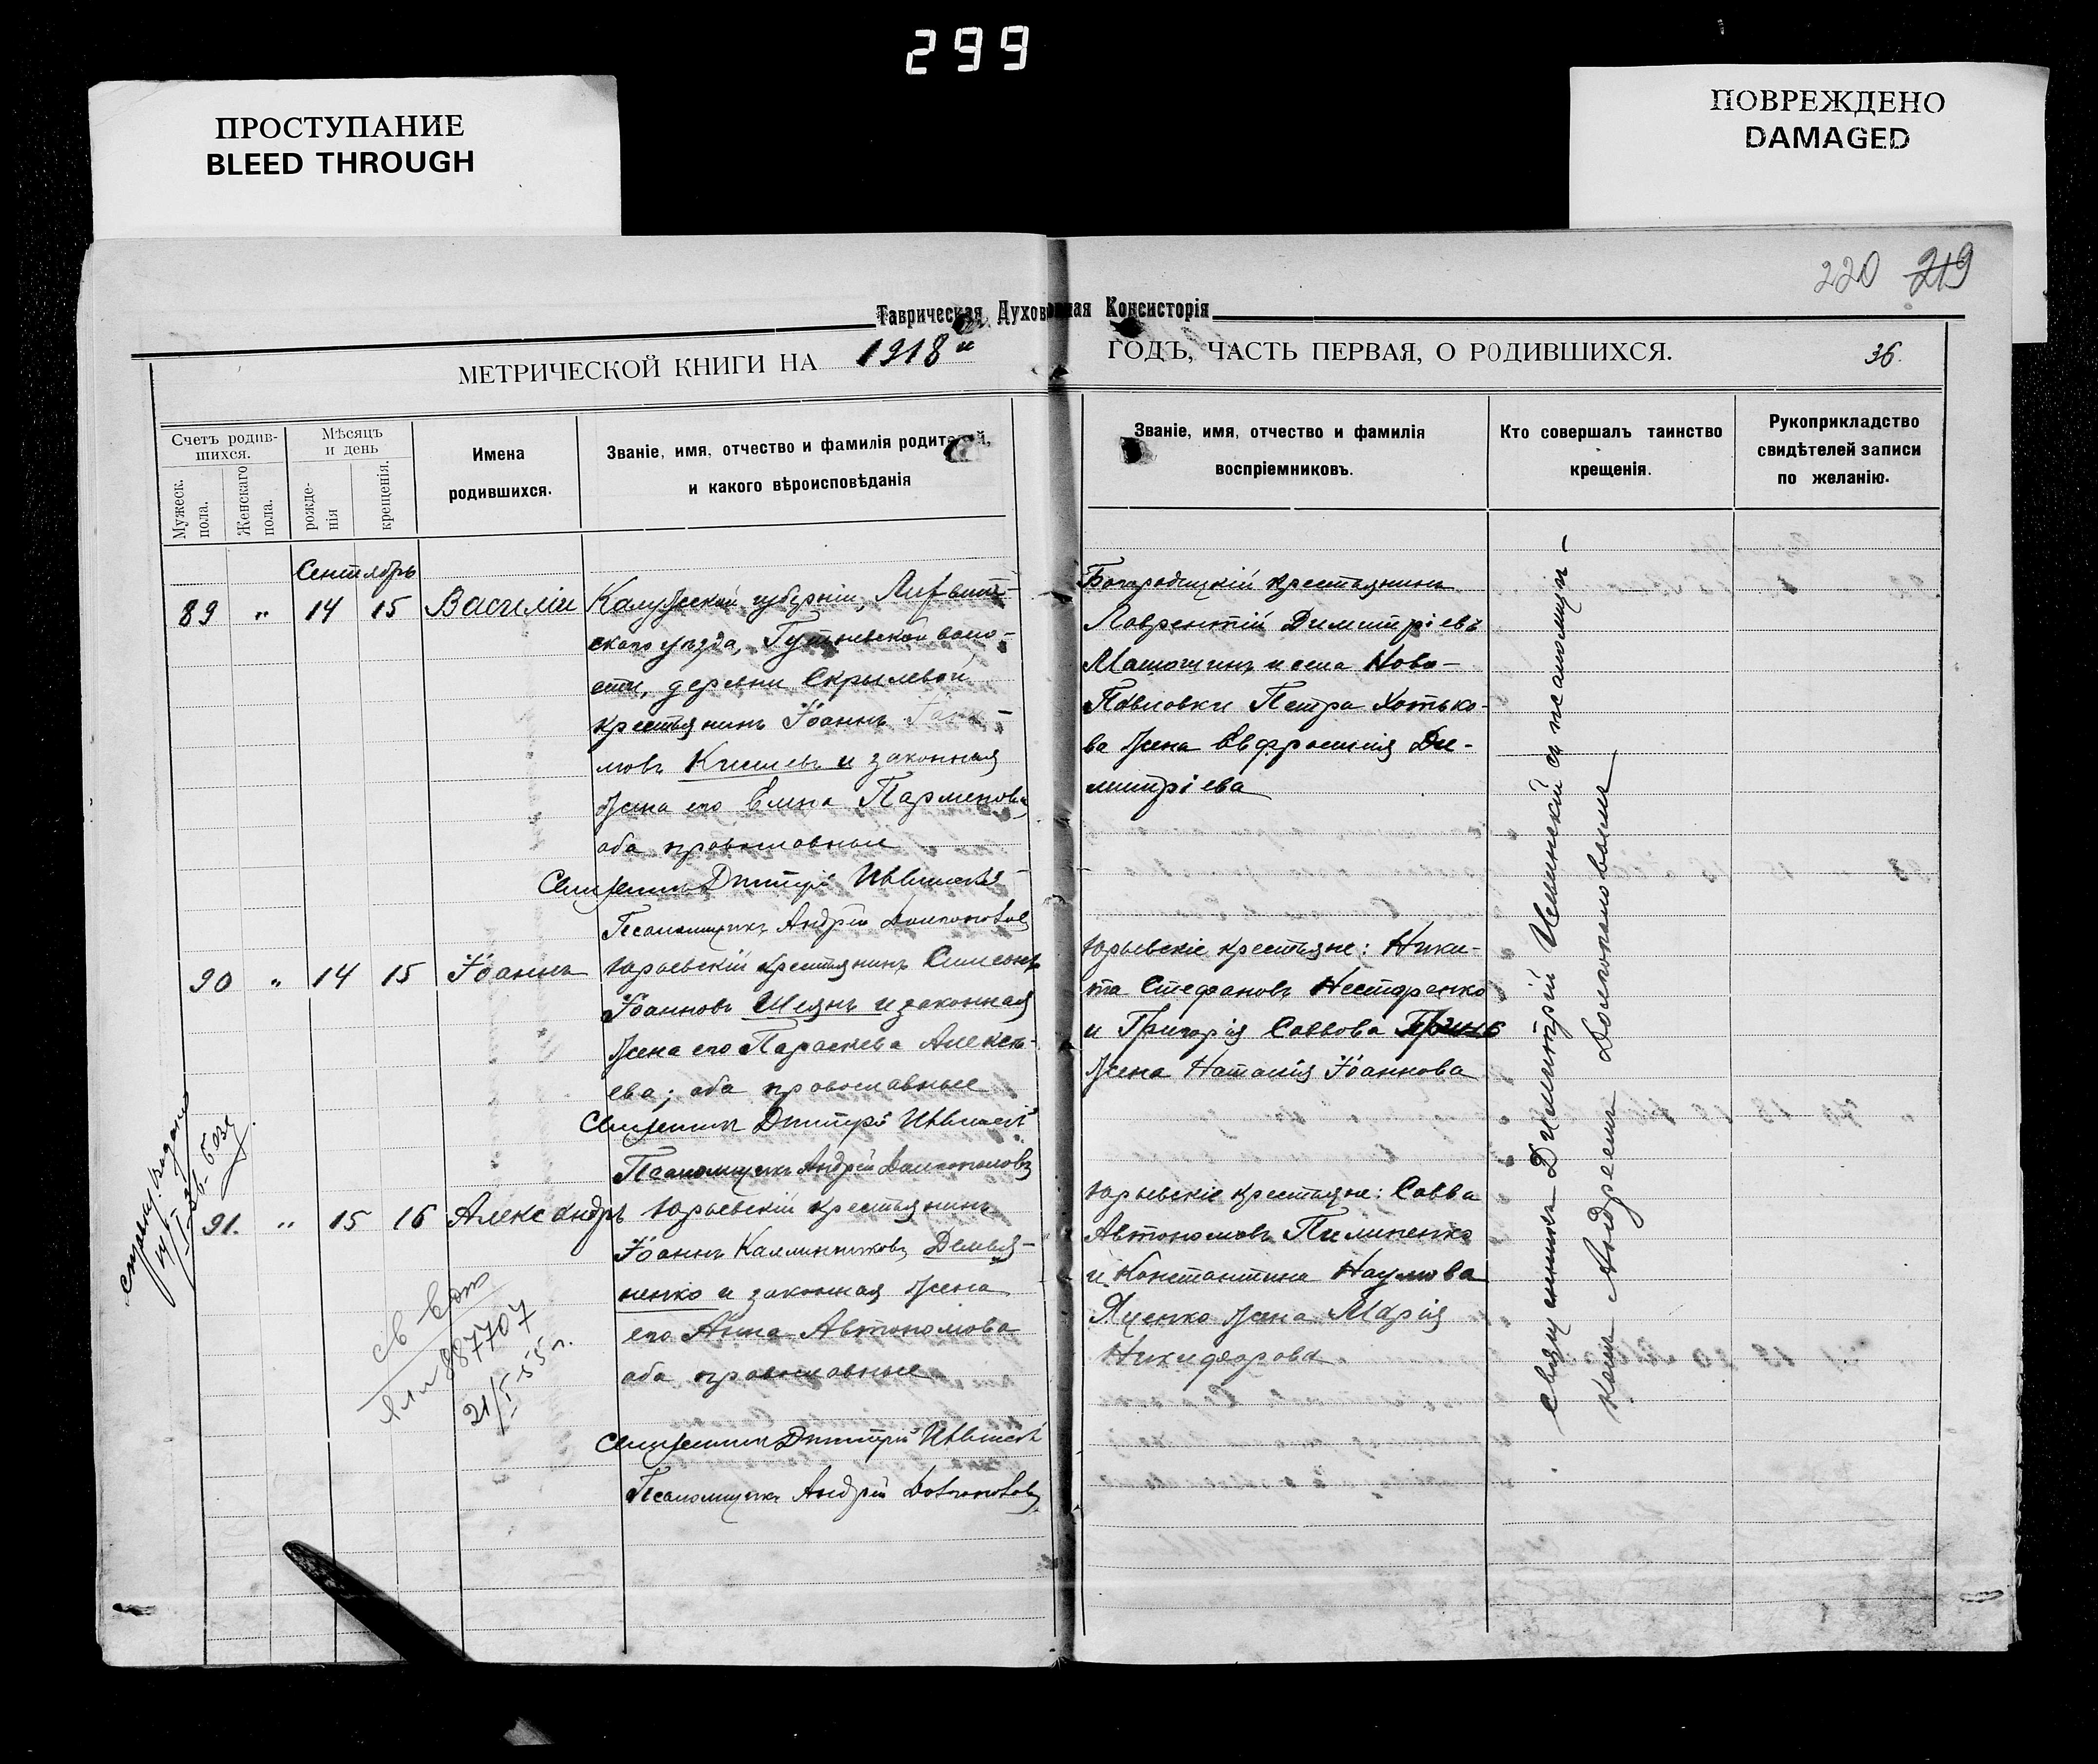 299
ПРОСТУПАНИЕ
BLEED THROUGH
ПОВРЕЖДЕНО
DAMAGED
220 219
Таврическая Духовная Консисторія
МЕТРИЧЕСКОЙ КНИГИ НА 1918й ГОДЪ, ЧАСТЬ ПЕРВАЯ, О РОДИВШИХСЯ.
36.
Счетъ родив-
шихся.
Мужеск.
пола.
Женскаго
пола.
Мѣсяцъ
и день
рожде-
нія
крещенія.
Имена
родившихся.
Званіе, имя, отчество и фамилія родителей,
и какого вѣроисповѣданія
Званіе, имя, отчество и фамилія
воспріемниковъ.
Кто совершалъ таинство
крещенія.
Рукоприкладство
свидѣтелей записи
по желанію.
Сентябрь
89 " 14 15 Василій
Калужской губерніи,
скаго уѣзда, воло-
сти, деревни Скрылевой
крестьянинъ Іоаннъ
мовъ и законная
жена его Елена Парменова,
оба православные
Священникъ Дмитрій
Псаломщикъ Андрей Долгополовъ
Богородицкій крестьянинъ
Лаврентій Димитріевъ
и села Ново-
Павловки Петра Хотько-
ва жена Евфросинія Ди-
митріева
90 " 14 15 Іоаннъ
Юрьевскій крестьянинъ Симеонъ
Іоанновъ Шеянъ и законная
жена его Параскева Алексѣ-
ева; оба православные
Священникъ Дмитрій
Псаломщикъ Андрей Долгополовъ
Юрьевскіе крестьяне: Ники-
та Стефановъ Несторенко
и Григорія Саввова
жена Наталія Іоаннова
91. " 15 16 Александръ
Юрьевскій крестьянинъ
Іоаннъ Каллиниковъ Демья-
ненко и законная жена
его Анна Автономова
оба православные
Священникъ Дмитрій
Псаломщикъ Андрей Долгополовъ
Юрьевскіе крестьяне: Савва
Автономовъ Пилипенко
и Константина Наумова
Яценко жена Марія
Никифорова
Священникъ Димитрій съ псаломщи-
комъ Андреемъ Долгополовымъ
887707
21/I 55 г.